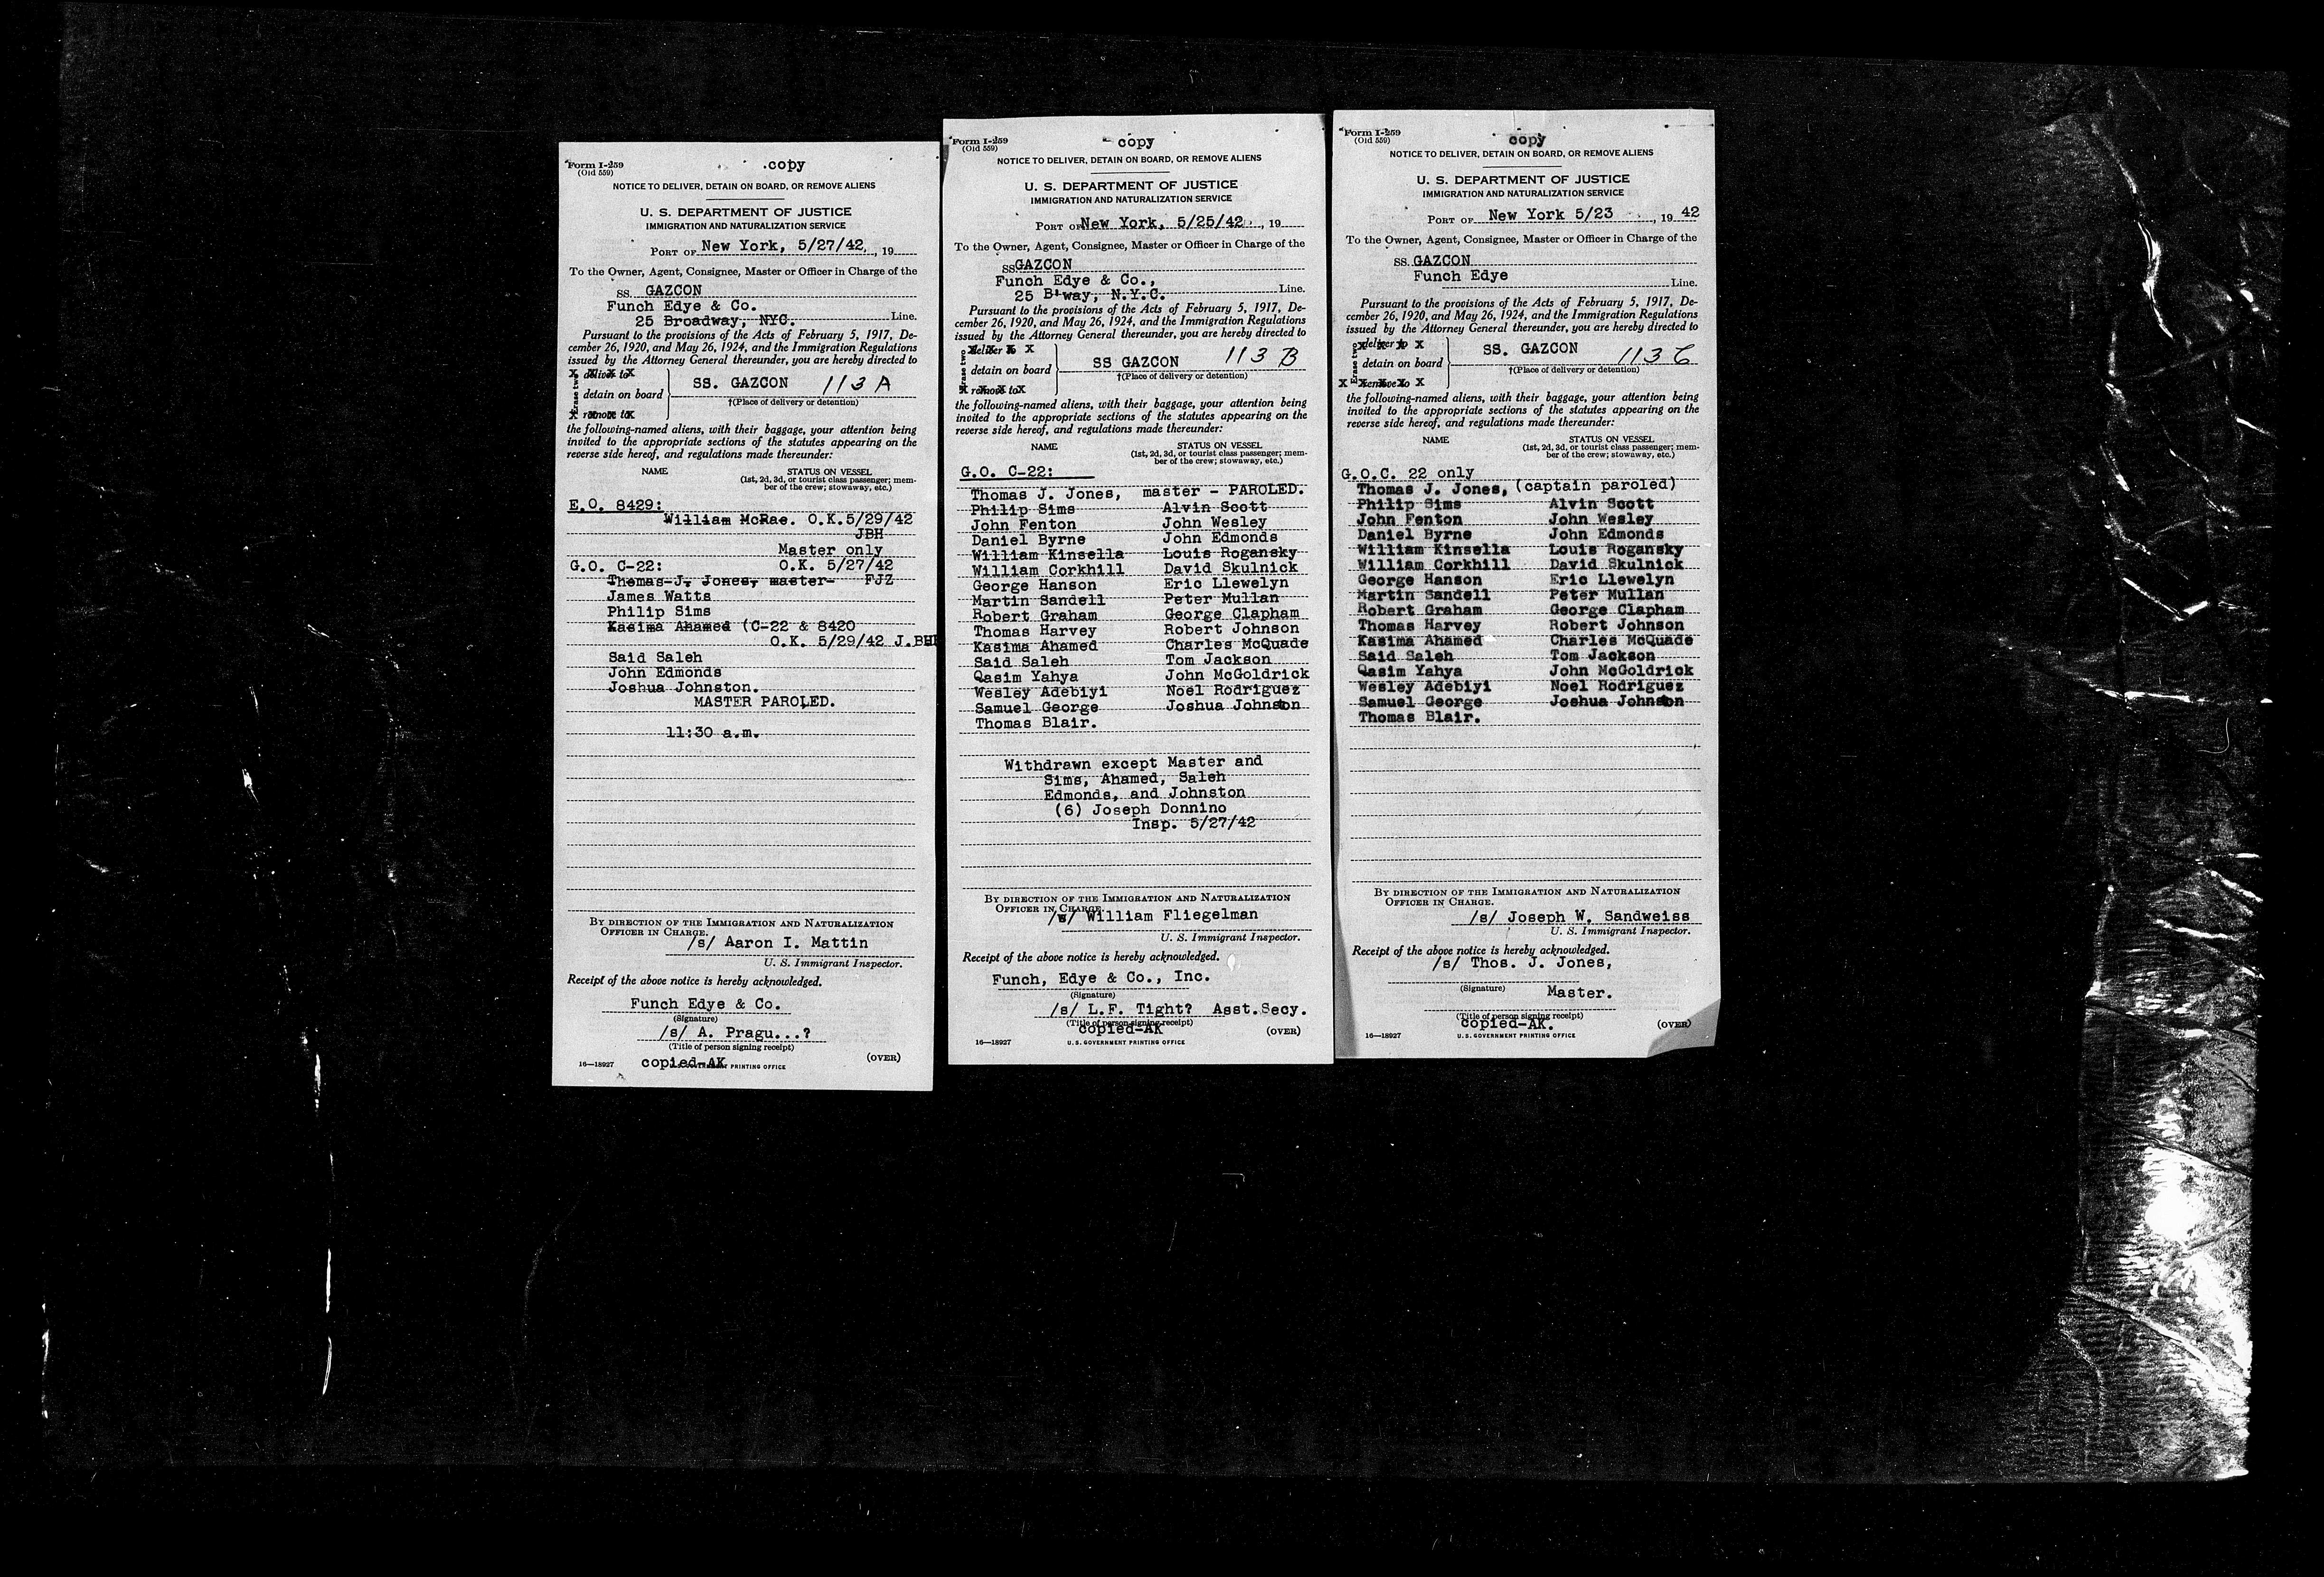 Form I-259
(Old 559)
copy
NOTICE TO DELIVER, DETAIN ON BOARD, OR REMOVE ALIENS
U. S. DEPARTMENT OF JUSTICE
IMMIGRATION AND NATURALIZATION SERVICE
PORT OF New York, 5/27/42, 19
To the Owner, Agent, Consignee, Master or Officer in Charge of the
SS. GAZCON
Funch Edye & Co.
25 Broadway, NYC. Line.
Pursuant to the provisions of the Acts of February 5, 1917, De-
cember 26, 1920, and May 26, 1924, and the Immigration Regulations
issued by the Attorney General thereunder, you are hereby directed to
Erase two
X deliver to X
detain on board
SS. GAZCON 113 A
†(Place of delivery or detention)
X remove to X
the following-named aliens, with their baggage, your attention being
invited to the appropriate sections of the statutes appearing on the
reverse side hereof, and regulations made thereunder:
NAME STATUS ON VESSEL
(1st, 2d, 3d, or tourist class passenger; mem-
ber of the crew; stowaway, etc.)
E.O. 8429:
William McRae. O.K.5/29/42
JBH
Master only
G.O. C-22: O.K. 5/27/42
Thomas J. Jones, master- FJZ
James Watts
Philip Sims
Kasima Ahamed (C-22 & 8420
O.K. 5/29/42 J.BH
Said Saleh
John Edmonds
Joshua Johnston.
MASTER PAROLED.
11:30 a.m.
BY DIRECTION OF THE IMMIGRATION AND NATURALIZATION
OFFICER IN CHARGE.
/s/ Aaron I. Mattin
U. S. Immigrant Inspector.
Receipt of the above notice is hereby acknowledged.
Funch Edye & Co.
(Signature)
/s/ A. Pragu...?
(Title of person signing receipt)
(OVER)
16—18927 copied-AK PRINTING OFFICE
Form I-259
(Old 559)
copy
NOTICE TO DELIVER, DETAIN ON BOARD, OR REMOVE ALIENS
U. S. DEPARTMENT OF JUSTICE
IMMIGRATION AND NATURALIZATION SERVICE
PORT OF New York, 5/25/42, 19
To the Owner, Agent, Consignee, Master or Officer in Charge of the
SS GAZCON
Funch Edye & Co.,
25 B'way, N.Y.C. Line.
Pursuant to the provisions of the Acts of February 5, 1917, De-
cember 26, 1920, and May 26, 1924, and the Immigration Regulations
issued by the Attorney General thereunder, you are hereby directed to
Erase two
deliver to X
detain on board
SS GAZCON 113 B
†(Place of delivery or detention)
X remove to X
the following-named aliens, with their baggage, your attention being
invited to the appropriate sections of the statutes appearing on the
reverse side hereof, and regulations made thereunder:
NAME STATUS ON VESSEL
(1st, 2d, 3d, or tourist class passenger; mem-
ber of the crew; stowaway, etc.)
G.O. C-22:
Thomas J. Jones, master - PAROLED.
Philip Sims Alvin Scott
John Fenton John Wesley
Daniel Byrne John Edmonds
William Kinsella Louis Rogansky
William Corkhill David Skulnick
George Hanson Eric Llewelyn
Martin Sandell Peter Mullan
Robert Graham George Clapham
Thomas Harvey Robert Johnson
Kasima Ahamed Charles McQuade
Said Saleh Tom Jackson
Qasim Yahya John McGoldrick
Wesley Adebiyi Noel Rodriguez
Samuel George Joshua Johnston
Thomas Blair.
Withdrawn except Master and
Sims, Ahamed, Saleh
Edmonds, and Johnston
(6) Joseph Donnino
Insp. 5/27/42
BY DIRECTION OF THE IMMIGRATION AND NATURALIZATION
OFFICER IN CHARGE.
/s/ William Fliegelman
U. S. Immigrant Inspector.
Receipt of the above notice is hereby acknowledged.
Funch, Edye & Co., Inc.
(Signature)
/s/ L.F. Tight? Asst.Secy.
(Title of person signing receipt)
copied-AK (OVER)
16—18927 U. S. GOVERNMENT PRINTING OFFICE
Form I-259
(Old 559)
copy
NOTICE TO DELIVER, DETAIN ON BOARD, OR REMOVE ALIENS
U. S. DEPARTMENT OF JUSTICE
IMMIGRATION AND NATURALIZATION SERVICE
PORT OF New York 5/23, 19 42
To the Owner, Agent, Consignee, Master or Officer in Charge of the
SS. GAZCON
Funch Edye
Line.
Pursuant to the provisions of the Acts of February 5, 1917, De-
cember 26, 1920, and May 26, 1924, and the Immigration Regulations
issued by the Attorney General thereunder, you are hereby directed to
Erase two
deliver to X
detain on board
SS. GAZCON 113 C
†(Place of delivery or detention)
X remove to X
the following-named aliens, with their baggage, your attention being
invited to the appropriate sections of the statutes appearing on the
reverse side hereof, and regulations made thereunder:
NAME STATUS ON VESSEL
(1st, 2d, 3d, or tourist class passenger; mem-
ber of the crew; stowaway, etc.)
G.O.C. 22 only
Thomas J. Jones, (captain paroled)
Philip Sims Alvin Scott
John Fenton John Wesley
Daniel Byrne John Edmonds
William Kinsella Louis Rogansky
William Corkhill David Skulnick
George Hanson Eric Llewelyn
Martin Sandell Peter Mullan
Robert Graham George Clapham
Thomas Harvey Robert Johnson
Kasima Ahamed Charles McQuade
Said Saleh Tom Jackson
Qasim Yahya John McGoldrick
Wesley Adebiyi Noel Rodriguez
Samuel George Joshua Johnston
Thomas Blair.
BY DIRECTION OF THE IMMIGRATION AND NATURALIZATION
OFFICER IN CHARGE.
/s/ Joseph W. Sandweiss
U. S. Immigrant Inspector.
Receipt of the above notice is hereby acknowledged.
/s/ Thos. J. Jones,
(Signature) Master.
(Title of person signing receipt)
copied-AK. (OVER)
16—18927 U. S. GOVERNMENT PRINTING OFFICE